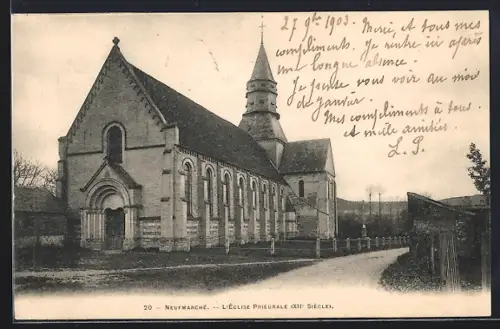 27 9bre 1903. Merci, et tous mes
compliments. Je rentre ici après
une longue absence.
Je pense vous voir au mois
de janvier.
Mes compliments à tous.
et mille amitiés
L. S.
20 - NEUFMARCHÉ. - L'ÉGLISE PRIEURALE (XIIe SIÈCLE).